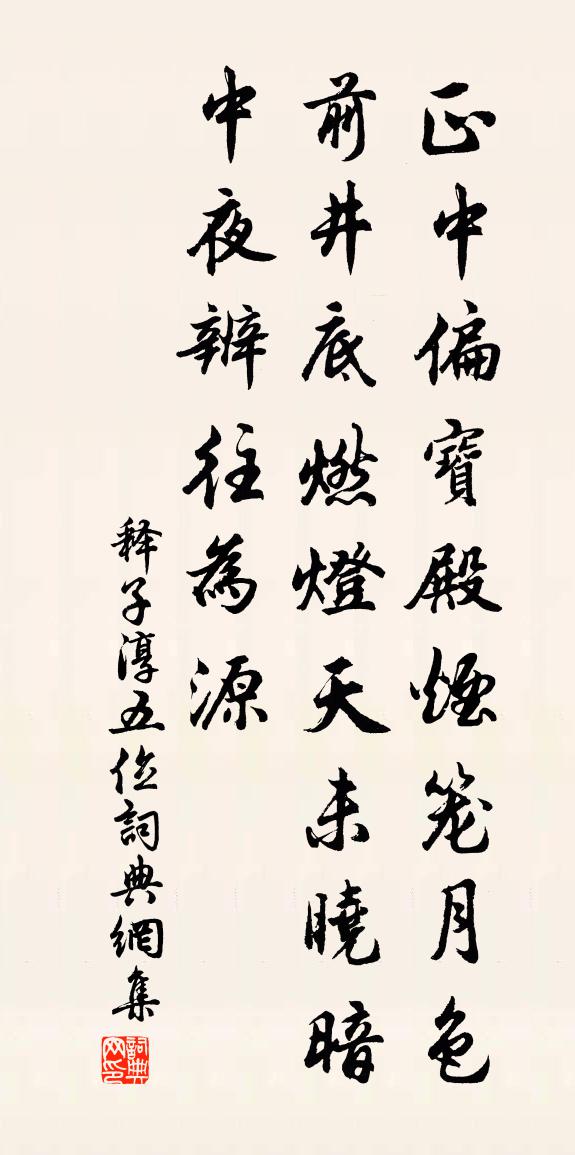 正中偏寶殿煙笼月色
前井底燃燈天未曉暗
中夜辨往為源
释子淳五位詞典網集
詞典网印